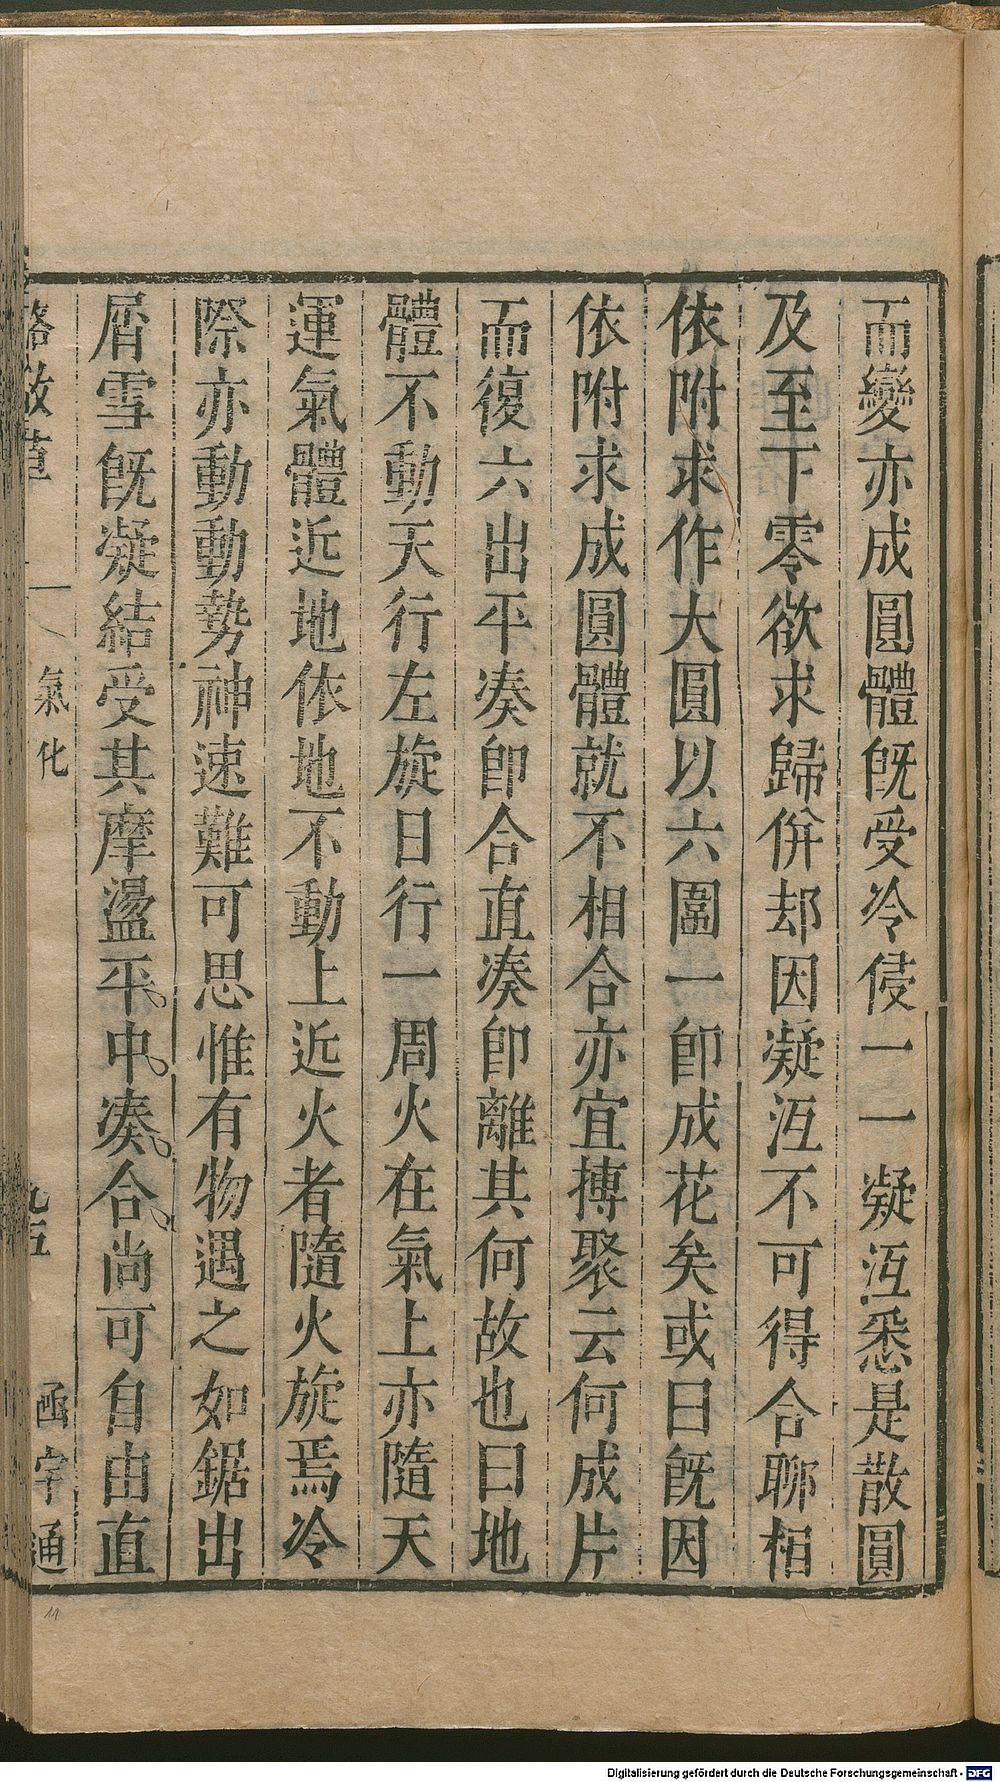 而變亦成圓體旣受冷侵一一凝沍悉是散圓
及至下零欲求歸併却因凝沍不可得合聊相
依附求作大圓以六圍一卽成花矣或曰旣因
依附求成圓體就不相合亦宜摶聚云何成片
而復六出平凑卽合直凑卽離其何故也曰地
體不動天行左旋日行一周火在氣上亦隨天
運氣體近地依地不動上近火者隨火旋焉冷
際亦動動勢神速難可思惟有物遇之如鋸出
屑雪旣凝結受其摩盪平中凑合尚可自由直
格致草 氣化 九五 函宇通
11
Digitalisierung gefördert durch die Deutsche Forschungsgemeinschaft - DFG